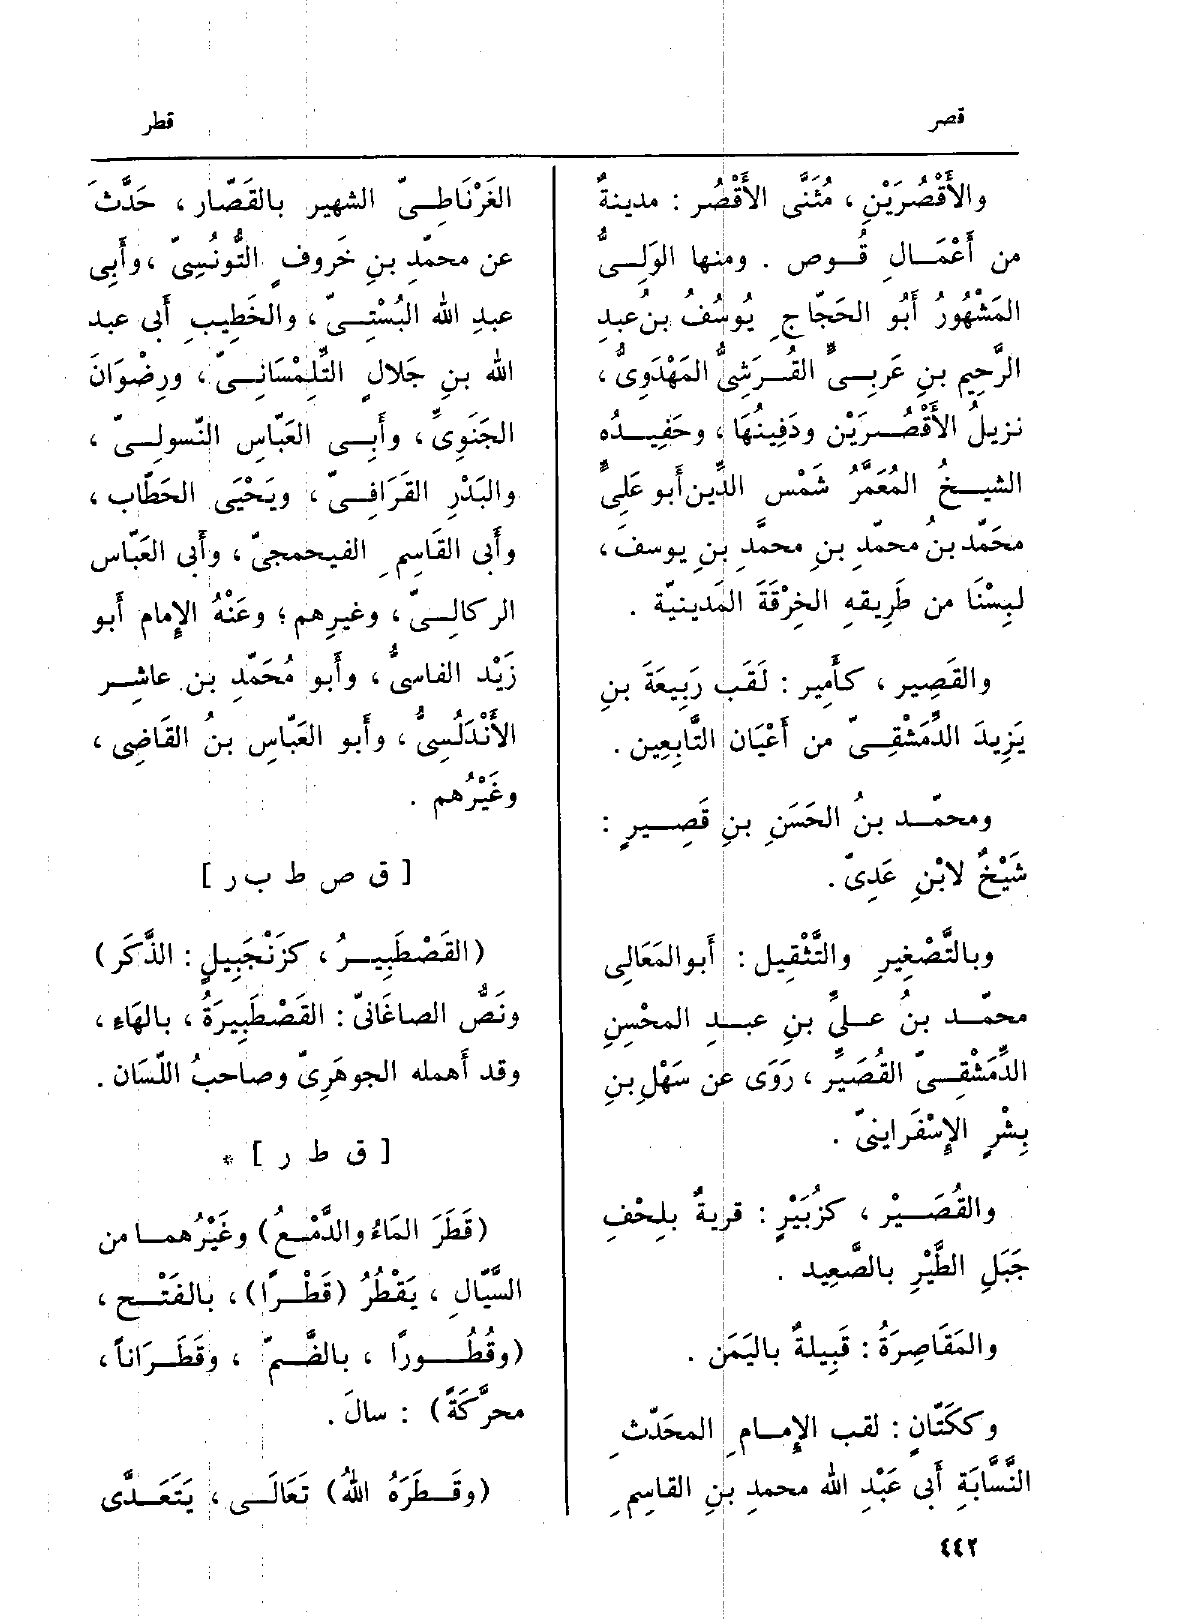 قصر
قطر
والأَقْصُرَيْنِ ، مُثَنَّى الأَقْصُر : مدينةٌ
من أَعْمَـالِ قُـوص . ومنها الوَلِـىُّ
المَشْهُورُ أَبُو الحَجّاجِ يُوسُفُ بن عبدِ
الرَّحِيم بنِ عَرِبـىٍّ القُـرَشِىُّ المَهْدَوِىُّ ،
نزيلُ الأَقْصُـرَيْن ودَفِينُهَا ، وحَفِيـدُه
الشيـخُ المُعَمَّرُ شَمْس الدِّين أَبو عَلِىٍّ
محَمّد بنُ محمّدِ بنِ محمَّدِ بنِ يوسفَ ،
لبِسْنَا من طَرِيقهِ الخِرْقَةَ المَدينيّة .
والقَصِير ، كأَمِير : لَقَب رَبِيعَةَ بنِ
يَزِيدَ الدِّمَشْقِـىّ من أَعْيَان التَّابِعِين .
ومحمّـد بنُ الحَسَنِ بنِ قَصِـيرٍ :
شَيْخٌ لابْنِ عَدِىّ .
وبالتَّصْغِيرِ والتَّثْقِيل : أَبو المَعَالِى
محمّـد بنُ علىِّ بنِ عبـدِ المحْسِنِ
الدِّمَشْقِـىّ القُصَيِّر ، رَوَى عن سَهْلِ بنِ
بِشْرٍ الإِسْفَراينىّ .
والقُصَـيْر ، كزُبَيْرٍ : قريةٌ بلِحْفِ
جَبَلِ الطَّيْرِ بالصَّعِيد .
والمَقَاصِرَةُ : قَبِيلةٌ باليَمَن .
وككَتّانٍ : لقب الإِمـامِ المحَدّثِ
النَّسَّابَةِ أَبى عَبْدِ الله محمدِ بنِ القاسِمِ
الغَرْنَاطِـىّ الشهير بالقَصّار ، حَدَّثَ
عن محمّدِ بنِ خَروفٍ التُّونُسِىّ ، وأَبِى
عبدِ الله البُسْتِـىّ ، والخَطِيبِ أَبى عبد
الله بنِ جَلالٍ التِّلِمْسَانِـىّ ، ورِضْوَانَ
الجَنَوِىِّ ، وأَبِـى العَبّاس النّسولِـىّ ،
والبَدْرِ القَرَافِـىّ ، ويَحْيَى الحَطّاب ،
وأَبى القَاسِمِ الفيحمجىّ ، وأَبى العَبّاس
الركالِـىّ ، وغيرِهم ؛ وعَنْهُ الإِمام أَبو
زَيْد الفاسىُّ ، وأَبو مُحَمّدِ بن عاشِـر
الأَنْدَلُسِىُّ ، وأَبو العَبّاس بنُ القَاضِى ،
وغَيْرُهم .
[ ق ص ط ب ر ]
(القَصْطَبِيـرُ ، كزَنْجَبِيلٍ : الذَّكَر)
ونَصُّ الصاغَانىّ : القَصْطَبِيرَةُ ، بالهَاءِ ،
وقد أَهمله الجوهَرِىّ وصاحبُ اللّسَان .
[ ق ط ر ] *
(قَطَرَ المَاءُ والدَّمْـعُ) وغَيْرُهمـا من
السَّيّالِ ، يَقْطُرُ (قَطْـرًا) ، بالفَتْـح ،
(وقُطُــورًا ، بالضَّـمّ ، وقَطَـرَاناً ،
محرَّكَةً) : سالَ .
(وقَـطَرَهُ اللهُ) تَعَالَـى ، يَتَعَـدَّى
٤٤٢